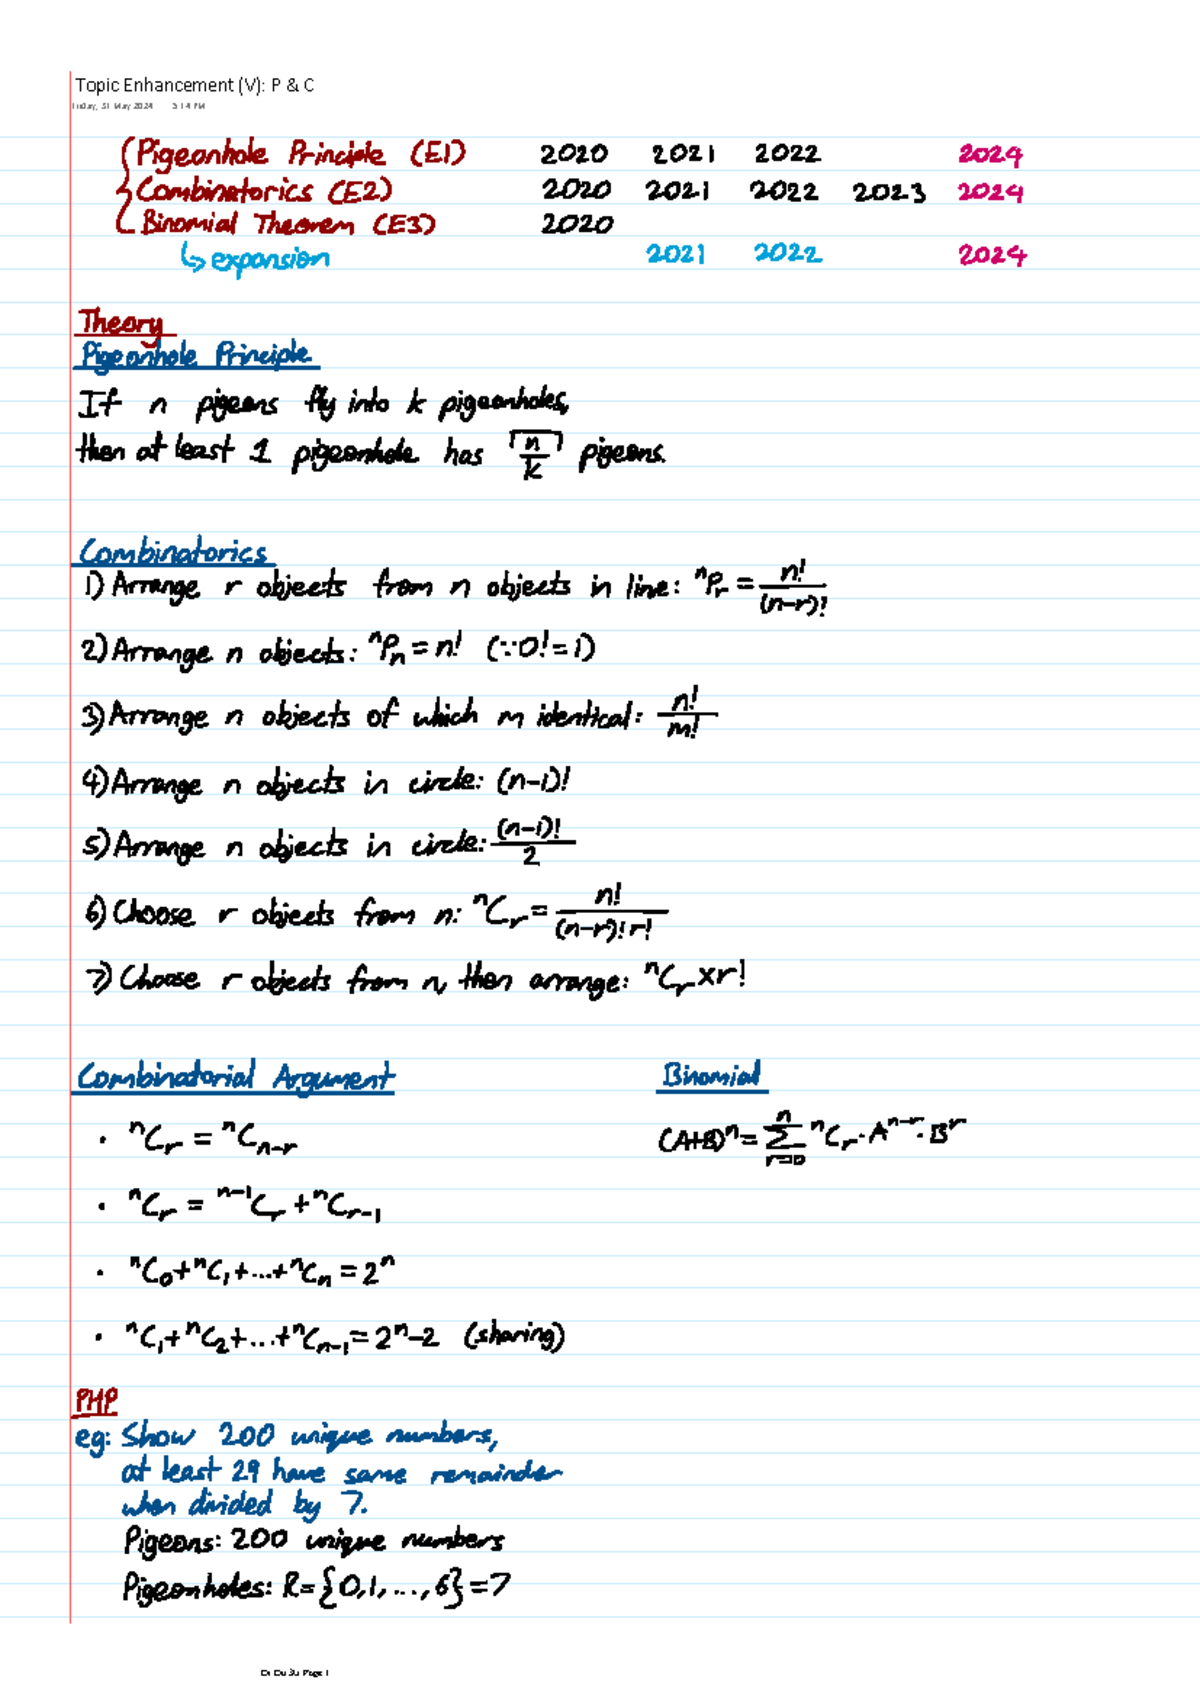 Topic Enhancement (V): P & C
Friday, 31 May 2024 5:14 PM
Pigeonhole Principle (E1) 2020 2021 2022 2024
Combinatorics (E2) 2020 2021 2022 2023 2024
Binomial Theorem (E3) 2020
↳ expansion 2021 2022 2024
Theory
Pigeonhole Principle
If n pigeons fly into k pigeonholes,
then at least 1 pigeonhole has ⌈n/k⌉ pigeons.
Combinatorics
1) Arrange r objects from n objects in line: ⁿPᵣ = n!/(n-r)!
2) Arrange n objects: ⁿPₙ = n! (∵0! = 1)
3) Arrange n objects of which m identical: n!/m!
4) Arrange n objects in circle: (n-1)!
5) Arrange n objects in circle: (n-1)!/2
6) Choose r objects from n: ⁿCᵣ = n!/(n-r)!r!
7) Choose r objects from n, then arrange: ⁿCᵣ x r!
Combinatorial Argument
• ⁿCᵣ = ⁿCₙ₋ᵣ
• ⁿCᵣ = ⁿ⁻¹Cᵣ + ⁿCᵣ₋₁
• ⁿC₀ + ⁿC₁ + ... + ⁿCₙ = 2ⁿ
• ⁿC₁ + ⁿC₂ + ... + ⁿCₙ₋₁ = 2ⁿ - 2 (sharing)
Binomial
(A+B)ⁿ = Σ_{r=0}^{n} ⁿCᵣ · Aⁿ⁻ʳ · Bʳ
PHP
eg: Show 200 unique numbers,
at least 29 have same remainder
when divided by 7.
Pigeons: 200 unique numbers
Pigeonholes: R = {0, 1, ..., 6} = 7
Page 1